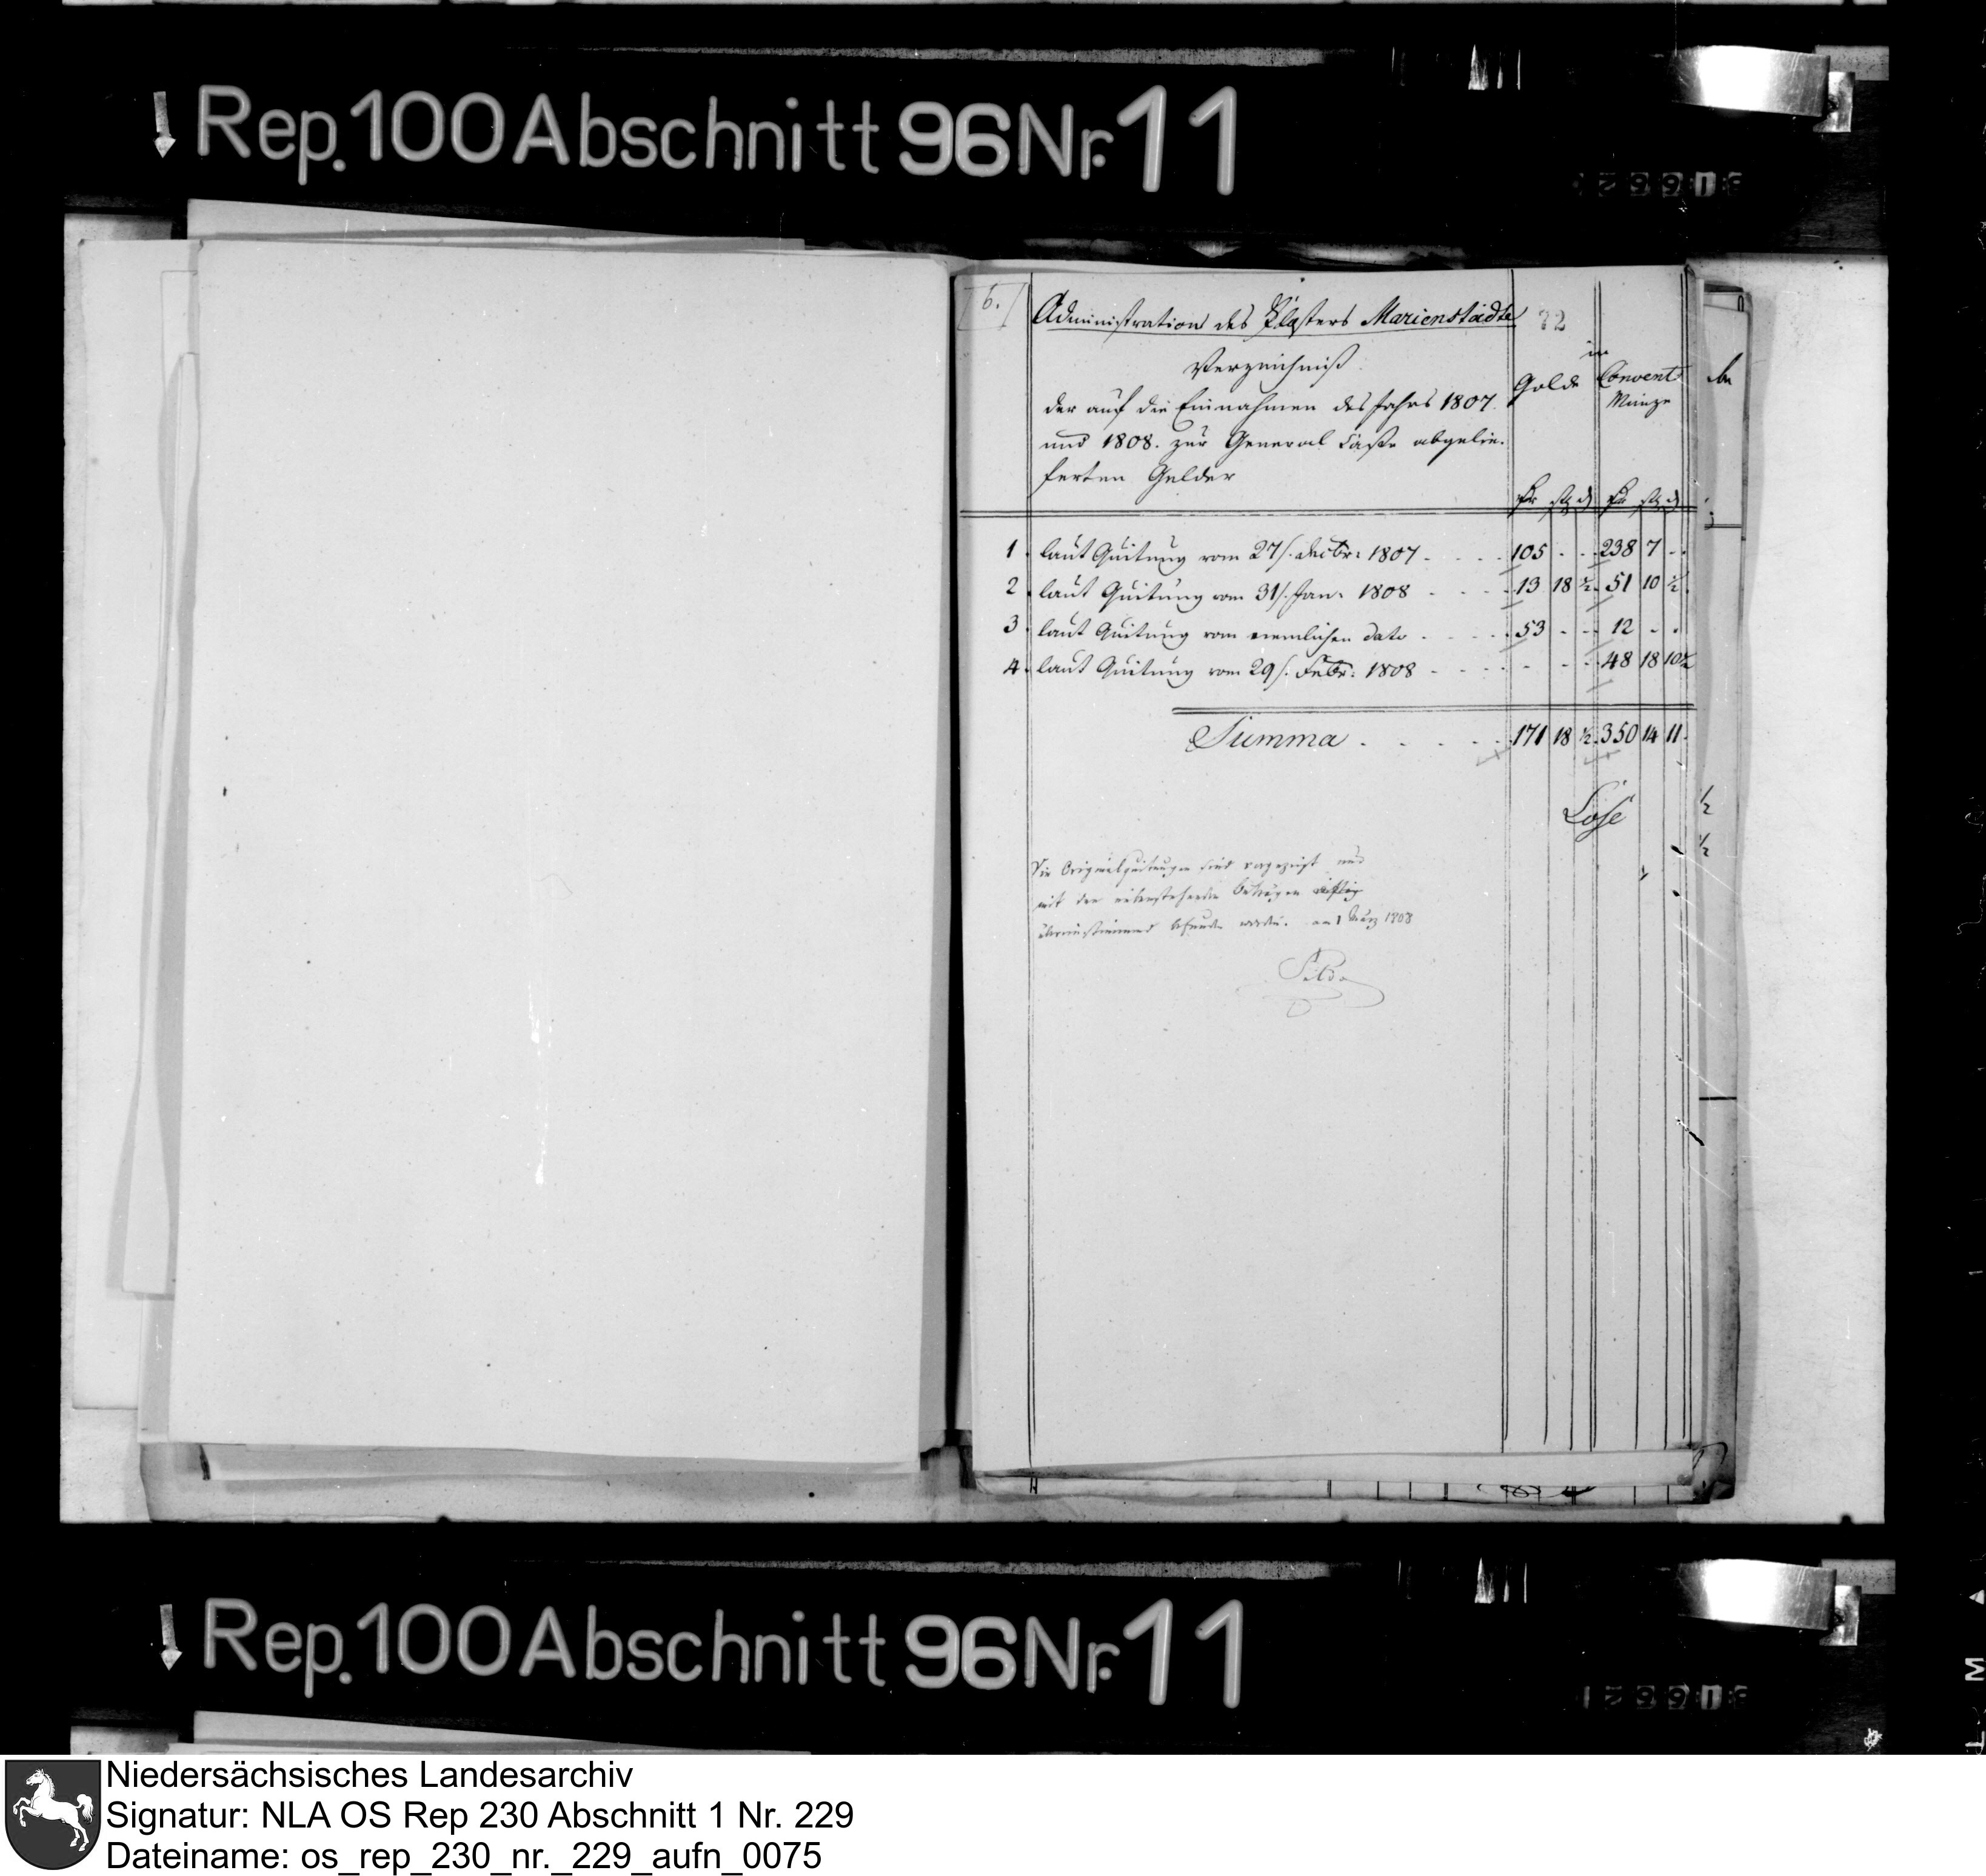 Rep. 100 Abschnitt 96 Nr. 11
6.
Administration des Klosters Marienstädte
72
Verzeichniß
der auf die Einnahmen des Jahrs 1807.
und 1808. zur General Casse abgelie-
ferten Gelder
in
Golde
Convent
Münze
1. laut Quitung vom 27/. Decbr: 1807 - - - - 105 - - 238 7 -
2. laut Quitung vom 31/. Jan. 1808 - - - - 13 18 ½ 51 10 ½
3. laut Quitung vom nemlichen dato - - - - 53 - - 12 - -
4. laut Quitung vom 29/. Febr: 1808 - - - - - - - 48 18 10½
Summa . . . . . 171 18 ½ 350 14 11
Lose
½
½
Die Originalquitungen sind vorgezeigt und
mit den nebenstehenden Beträgen richtig
übereinstimmend befunden worden. am 1 März 1808
Rep. 100 Abschnitt 96 Nr. 11
Niedersächsisches Landesarchiv
Signatur: NLA OS Rep 230 Abschnitt 1 Nr. 229
Dateiname: os_rep_230_nr._229_aufn_0075